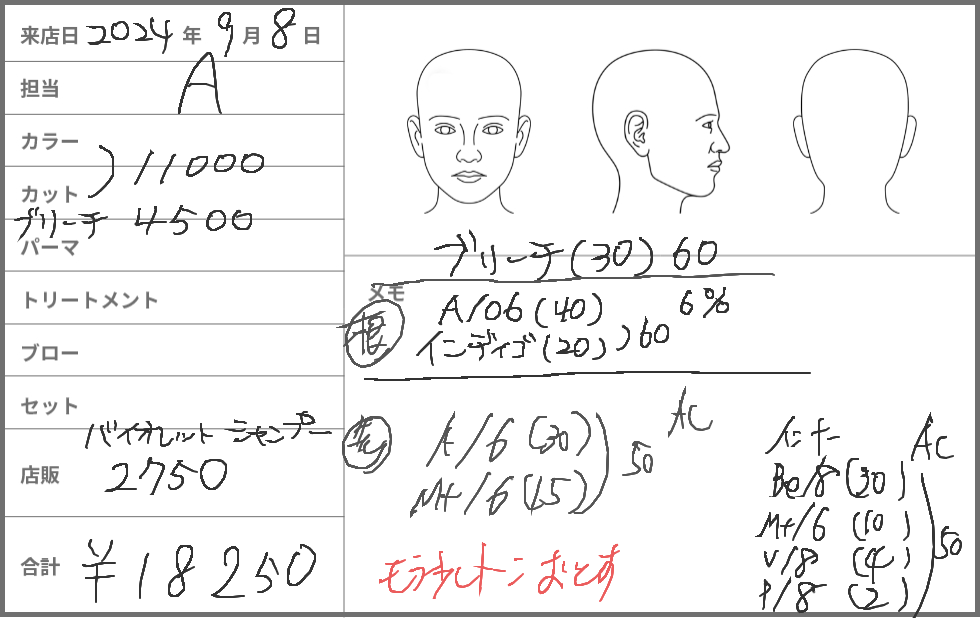 来店日 2024 年 9 月 8 日
担当 A
カラー
) 11000
カット
ブリーチ 4500
パーマ
トリートメント
ブロー
セット
バイオレットシャンプー
店販 2750
合計 ¥18250
ブリーチ(30) 60
メモ
根 A/06(40) 6%
インディゴ(20) ) 60
A/6(30) AC
Mt/6(15) ) 50
もう少しトーンおとす
インナー AC
Be/8(30)
Mt/6(10)
V/8(4) ) 50
P/8(2)